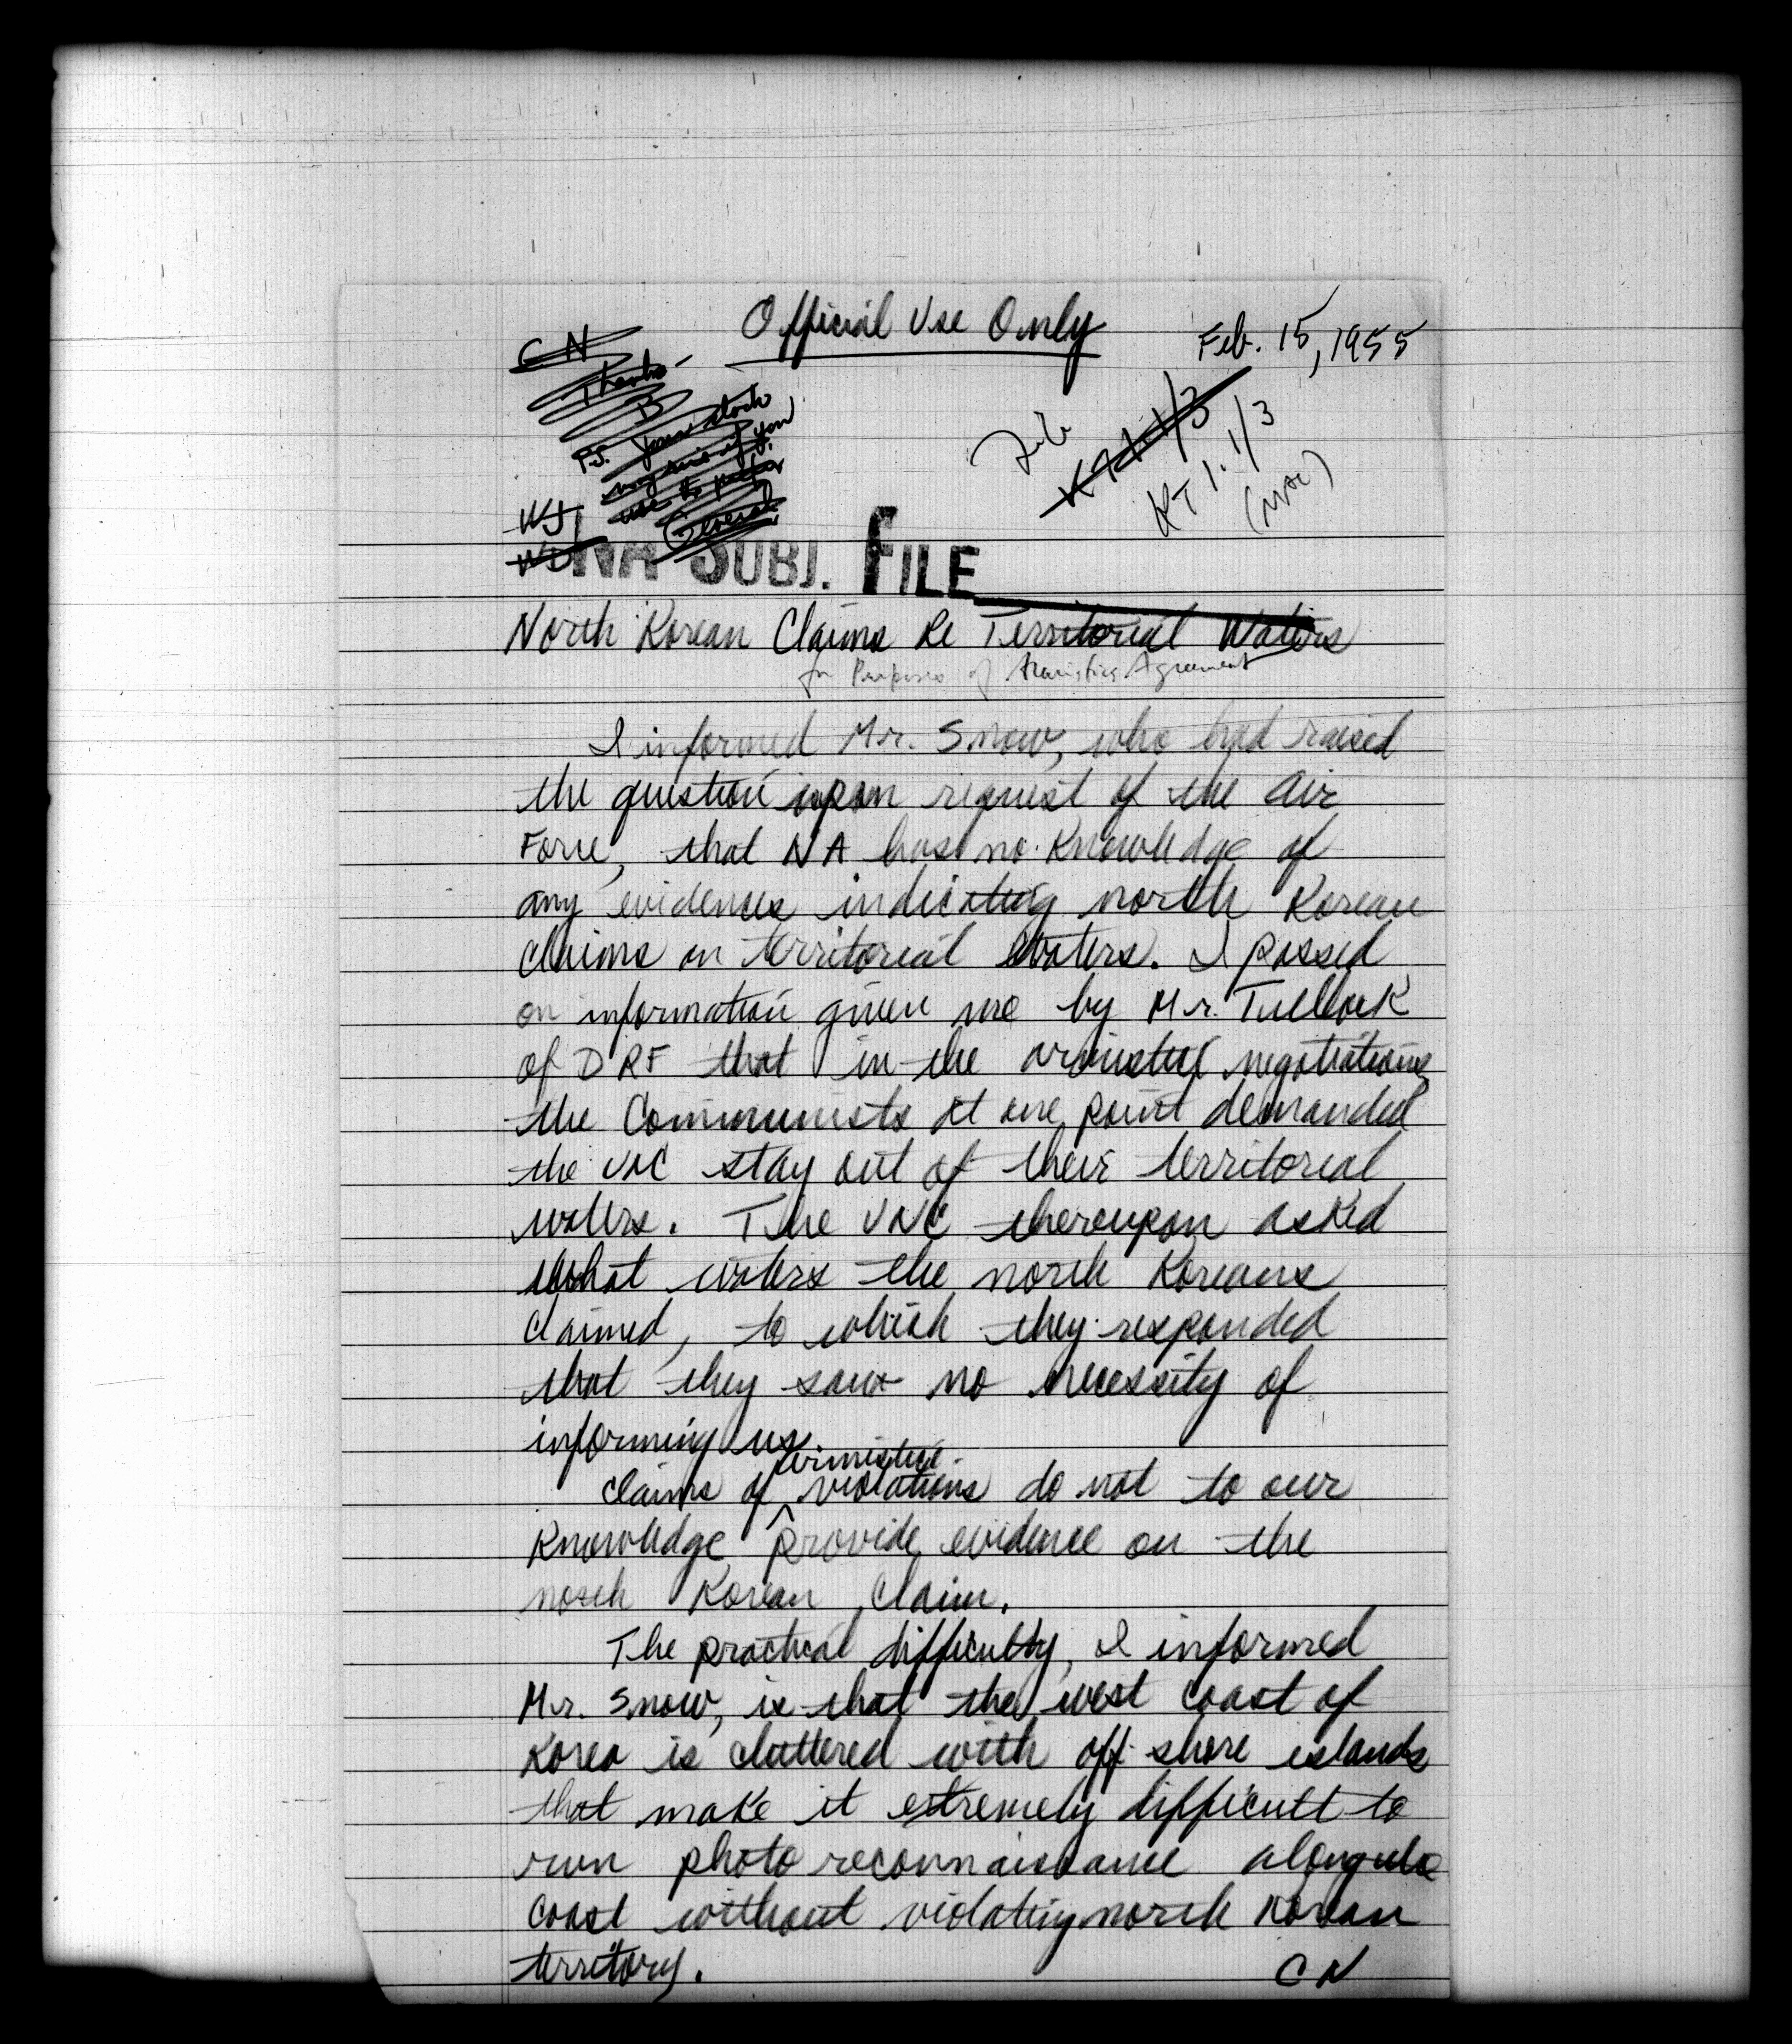 Official Use Only
Feb. 15, 1955
CN
Thanks -
B
P.S. Your
if you
use to
General
File
KT 1.1/3
KT 1.1/3
WJ
NA SUBJ. FILE
North Korean Claims Re Territorial Waters
for Purposes of Armistice Agreement
I informed Mr. Snow, who had raised
the question upon request of the Air
Force, that NA has no knowledge of
any evidences indicating north Korean
claims on territorial waters. I passed
on information given me by Mr. Tullock
of DRF that in the armistice negotiations
the Communists at one point demanded
the UNC stay out of their territorial
waters. The UNC thereupon asked
what waters the north Koreans
claimed, to which they responded
that they saw no necessity of
informing us.
armistice
Claims of violations do not to our
knowledge provide evidence on the
north Korean claim.
The practical difficulty, I informed
Mr. Snow, is that the west coast of
Korea is cluttered with off-shore islands
that make it extremely difficult to
run photo reconnaissance along the
coast without violating north Korean
territory.
CN